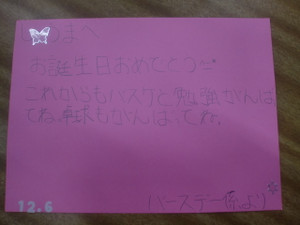 まへ
お誕生日おめでとう
これからもバスケと勉強がんば
てね。卓球もがんばってね。
バースデー係より
12.6